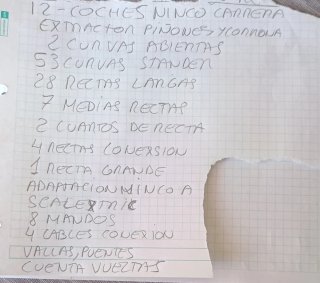 12-COCHES NINCO CARRERA
EXTRACTOR PIÑONES Y CORRONA
2 CURVAS ABIERTAS
53 CURVAS STANDER
28 RECTAS LARGAS
7 MEDIAS RECTAS
2 CUARTOS DE RECTA
4 RECTAS CONEXSION
1 RECTA GRANDE
ADAPTACION NINCO A
SCALEXTRIC
8 MANDOS
4 CABLES CONEXION
VALLAS, PUENTES
CUENTA VUELTAS